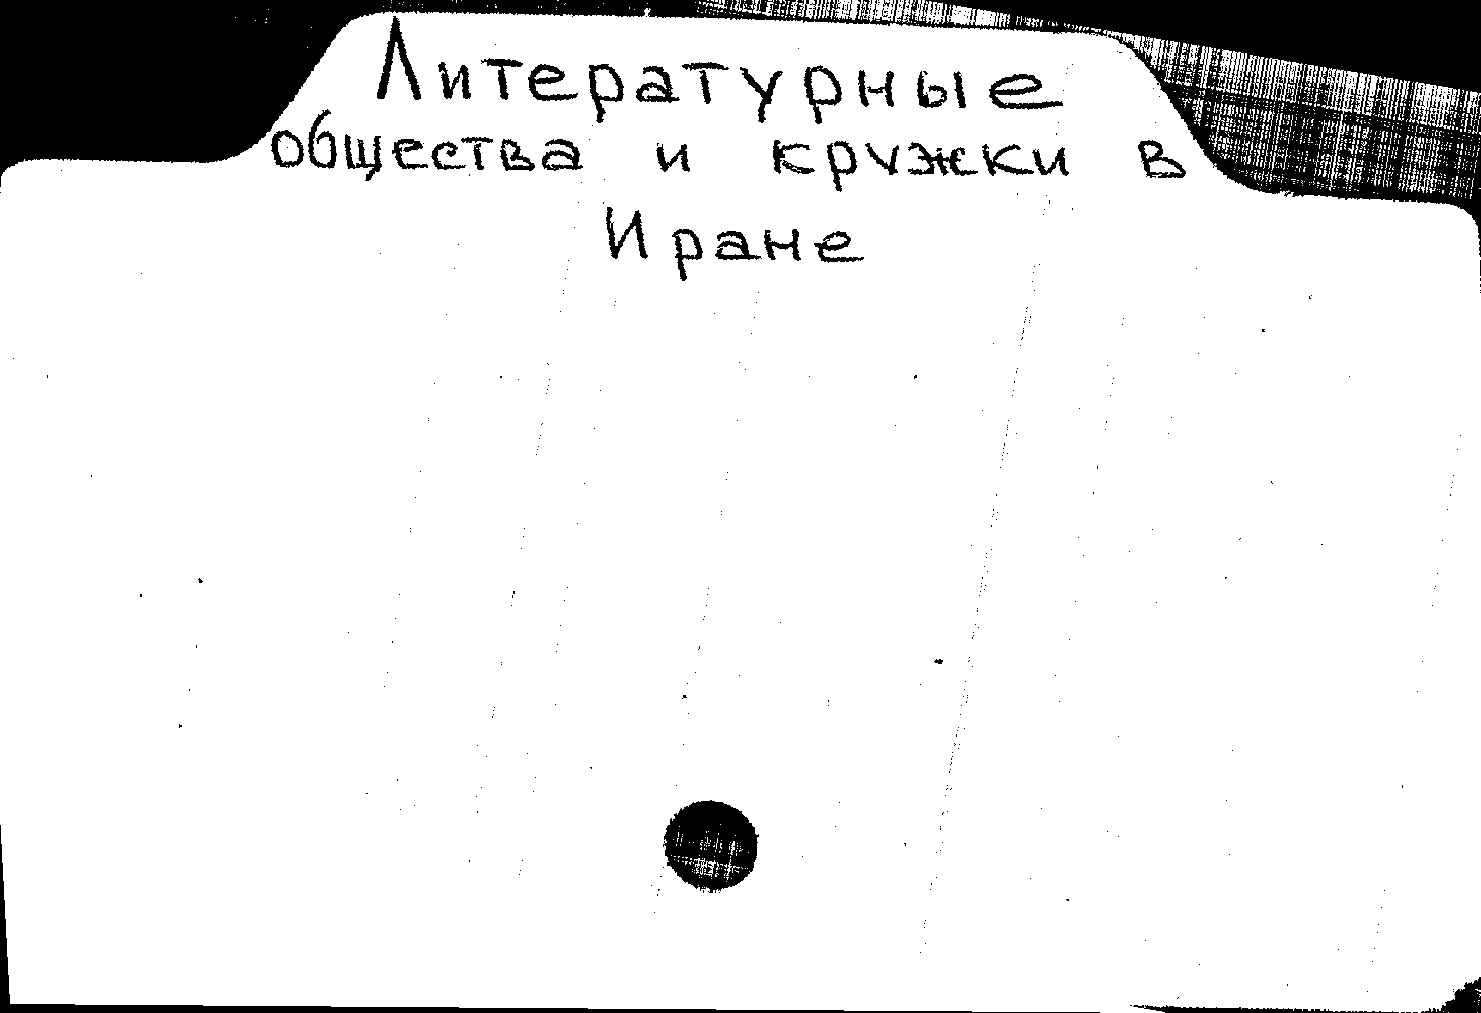 Литературные
общества и кружки в
Иране